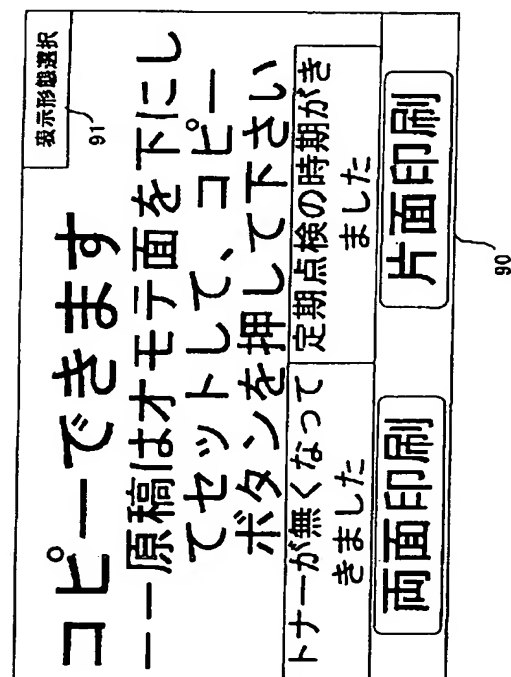 表示形態選択
91
コピーできます
――原稿はオモテ面を下にし
てセットして、コピー
ボタンを押して下さい
トナーが無くなって
きました
定期点検の時期がき
ました
両面印刷
片面印刷
90